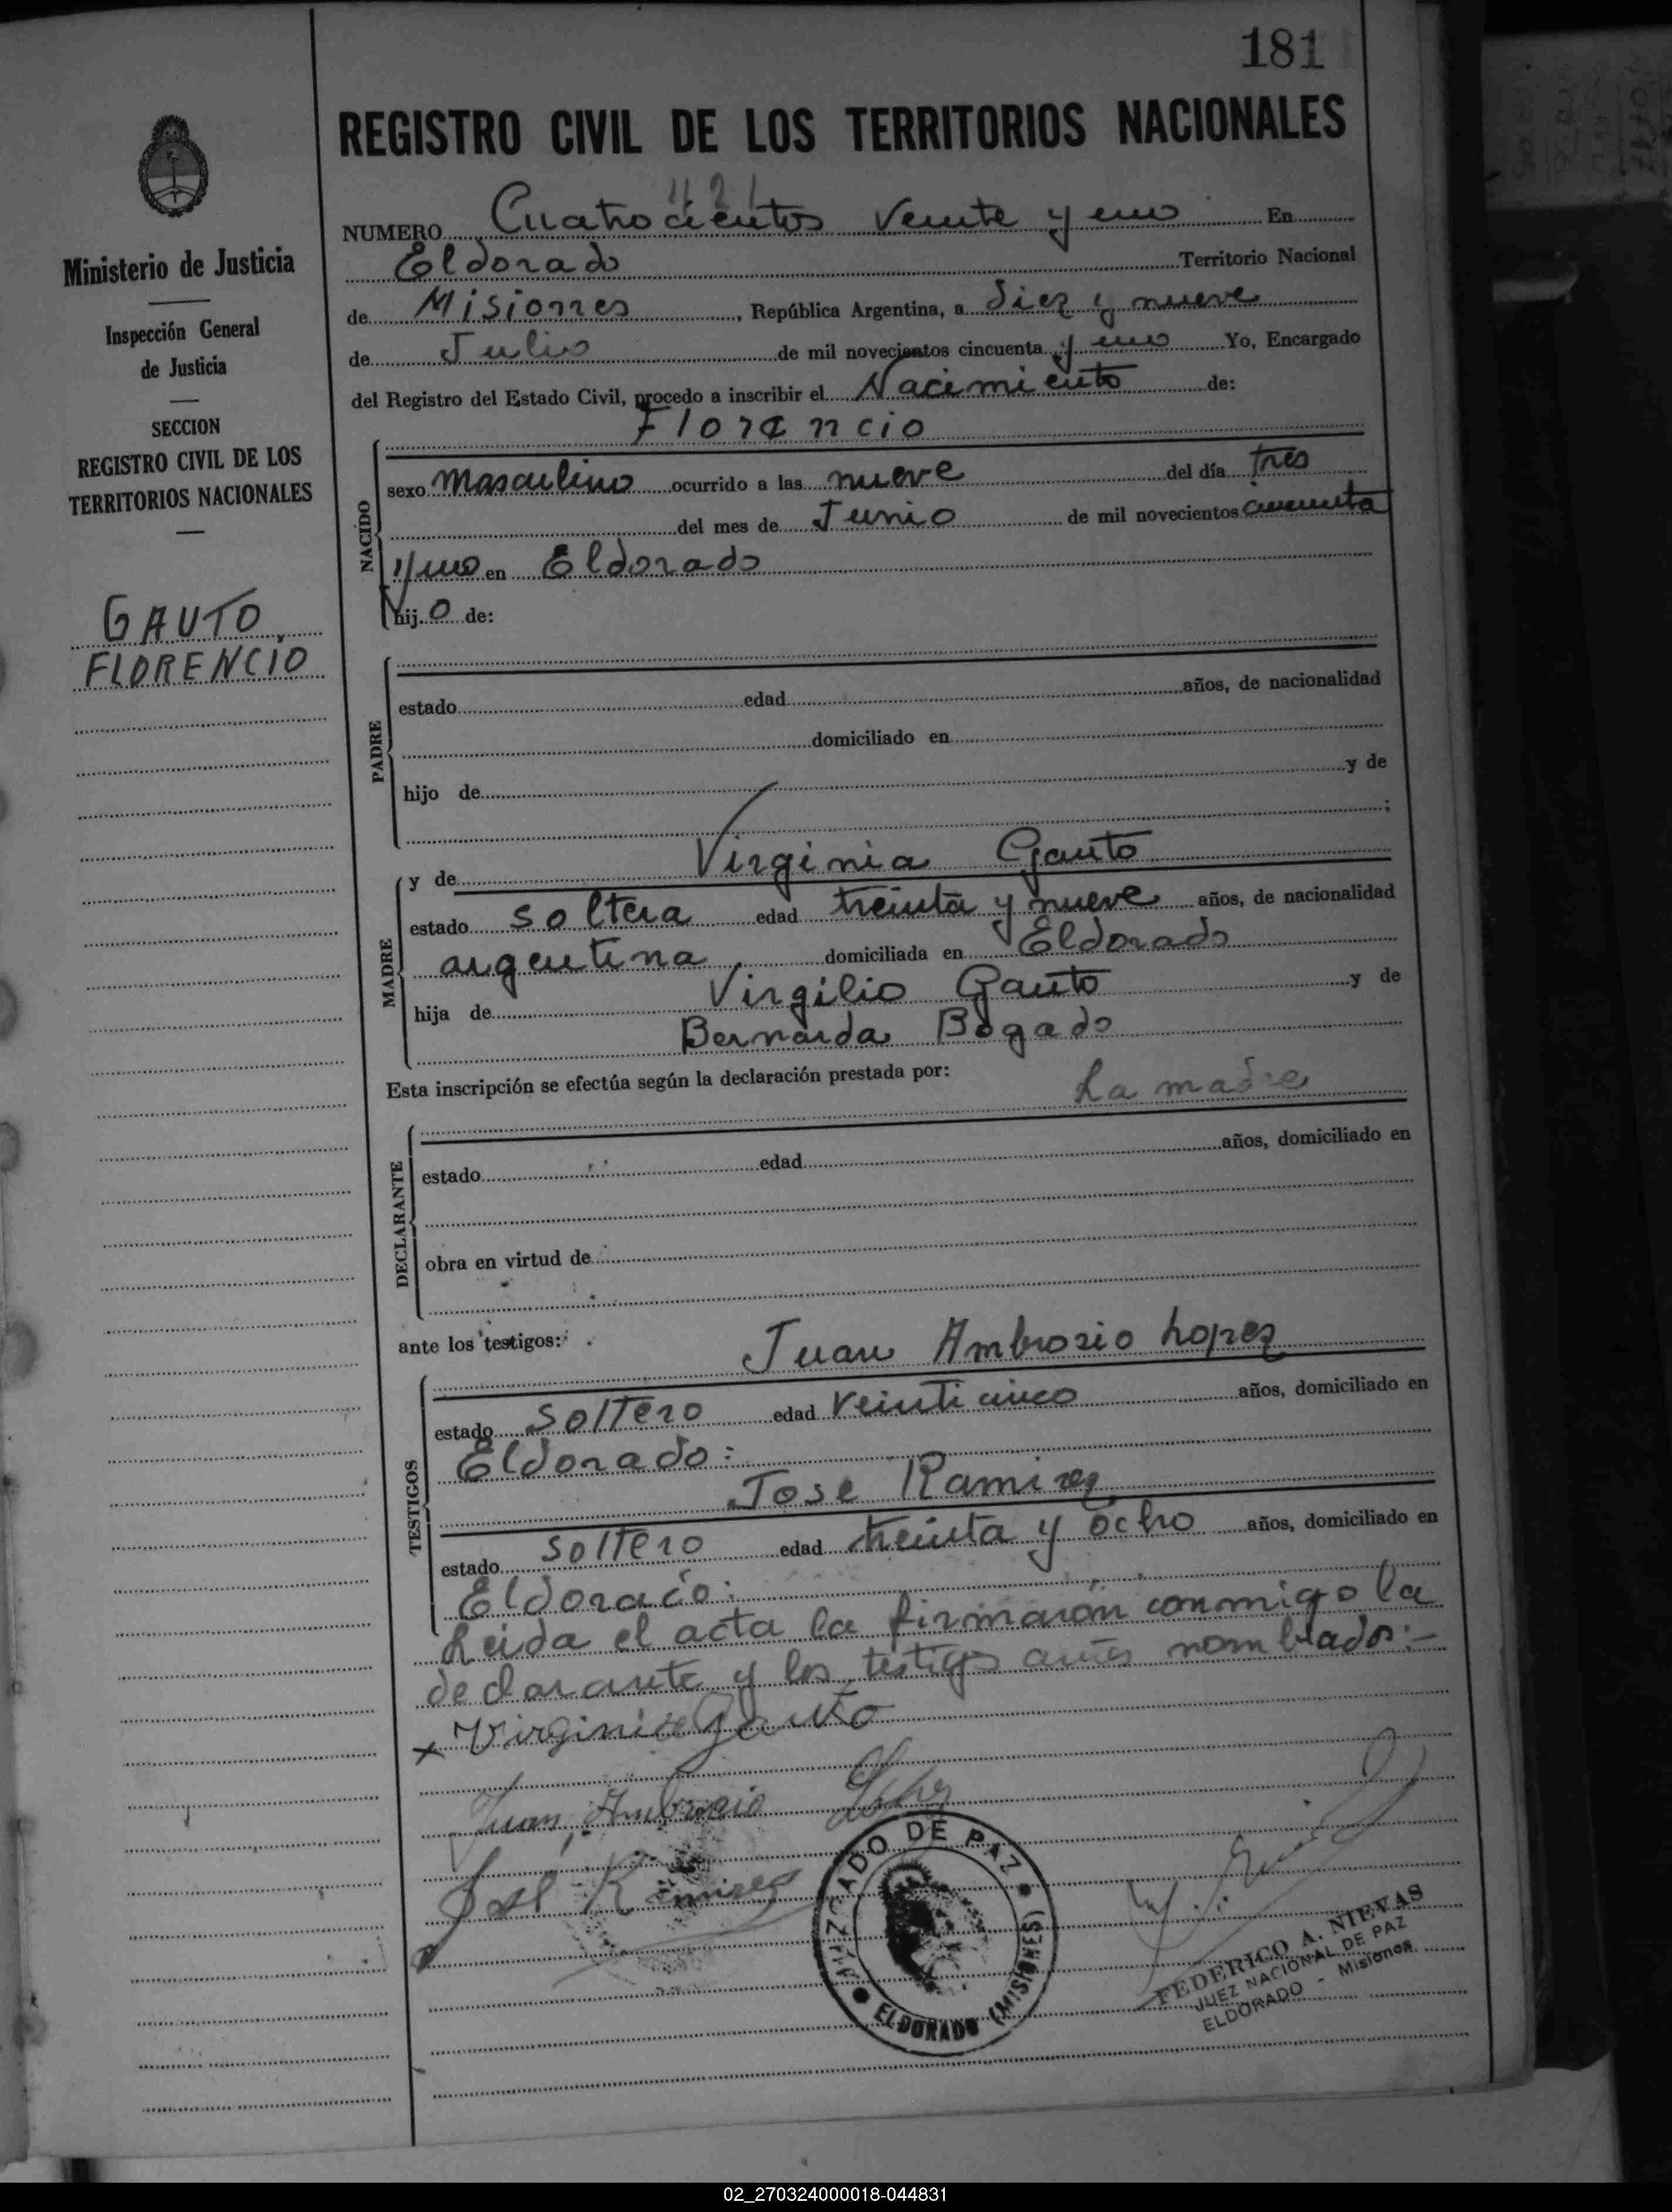 181
REGISTRO CIVIL DE LOS TERRITORIOS NACIONALES
Ministerio de Justicia
Inspección General
de Justicia
SECCION
REGISTRO CIVIL DE LOS
TERRITORIOS NACIONALES
GAUTO,
FLORENCIO
421
NUMERO Cuatrocientos veinte y uno En
Eldorado Territorio Nacional
de Misiones, República Argentina, a diez y nueve
de Julio de mil novecientos cincuenta y uno Yo, Encargado
del Registro del Estado Civil, procedo a inscribir el Nacimiento de:
Florencio
NACIDO
sexo masculino ocurrido a las nueve del día tres
del mes de Junio de mil novecientos cincuenta
y uno en Eldorado
hijo de:
PADRE
estado edad años, de nacionalidad
domiciliado en
hijo de y de
;
y de Virginia Gauto
MADRE
estado soltera edad treinta y nueve años, de nacionalidad
argentina domiciliada en Eldorado
hija de Virgilio Gauto y de
Bernarda Bogado
Esta inscripción se efectúa según la declaración prestada por:
La madre
DECLARANTE
estado edad años, domiciliado en
obra en virtud de
ante los testigos:
Juan Ambrosio Lopez
TESTIGOS
estado soltero edad veinticinco años, domiciliado en
Eldorado:
Jose Ramirez
estado soltero edad treinta y ocho años, domiciliado en
Eldorado:
Leida el acta la firmarón conmigo la
declarante y los testigos antes nombrados:-
x Virginia Gauto
Juan Ambrocio
José Ramirez
JUZGADO DE PAZ
ELDORADO (MISIONES)
FEDERICO A. NIEVAS
JUEZ NACIONAL DE PAZ
ELDORADO - Misiones
02_270324000018-044831